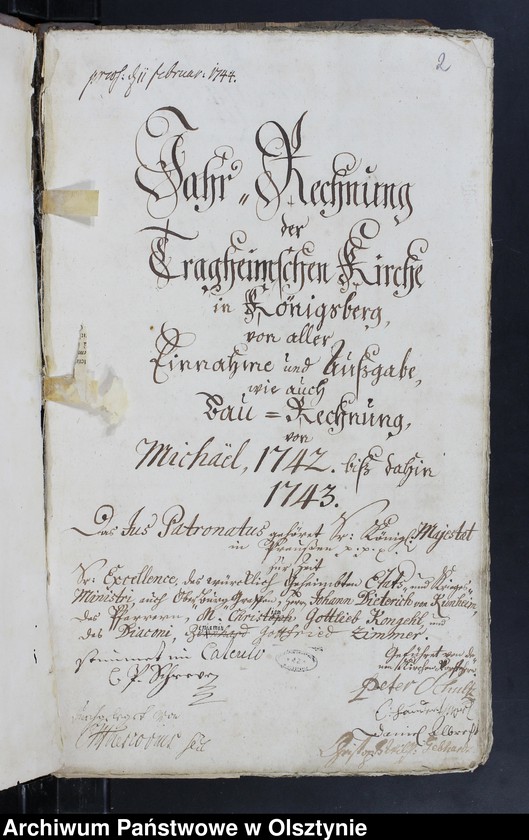 2
præs. d. 11 februar: 1744.
Jahr „ Rechnung
der
Tragheimschen Kirche
in Königsberg,
von aller
Einnahme und Außgabe,
wie auch
Bau = Rechnung,
von
Michäel, 1742. biß dahin
1743.
Das Jus Patronatus gehöret Sr: Königl: Majestät
in Preußen p.p.c.
zur Zeit
Sr: Excellence, des würcklich Geheimbten Etats- und Krieges-
Ministri, auch Ober-Burg-Graffen, Herrn Johann Dieterich von
des Pfarrern, M. Christoph Gottlieb und
des Diaconi, Gottfried Zimmer.
stimmet im Calculo
Geführet von de-
nen Kirchen Vorstehern
Peter Schultz
Daniel Albrecht
Archiwum Państwowe w Olsztynie